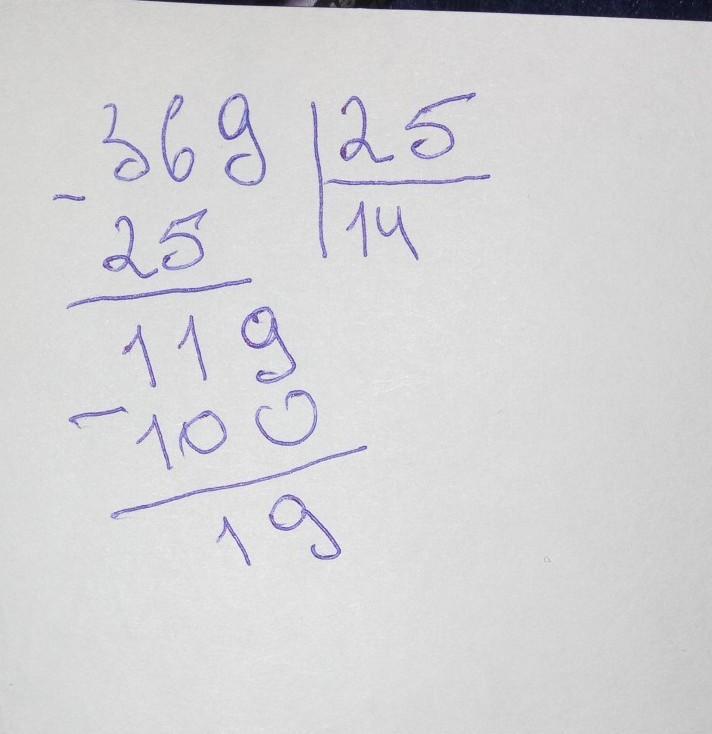 369 | 25
- 25 | 14
119
- 100
19